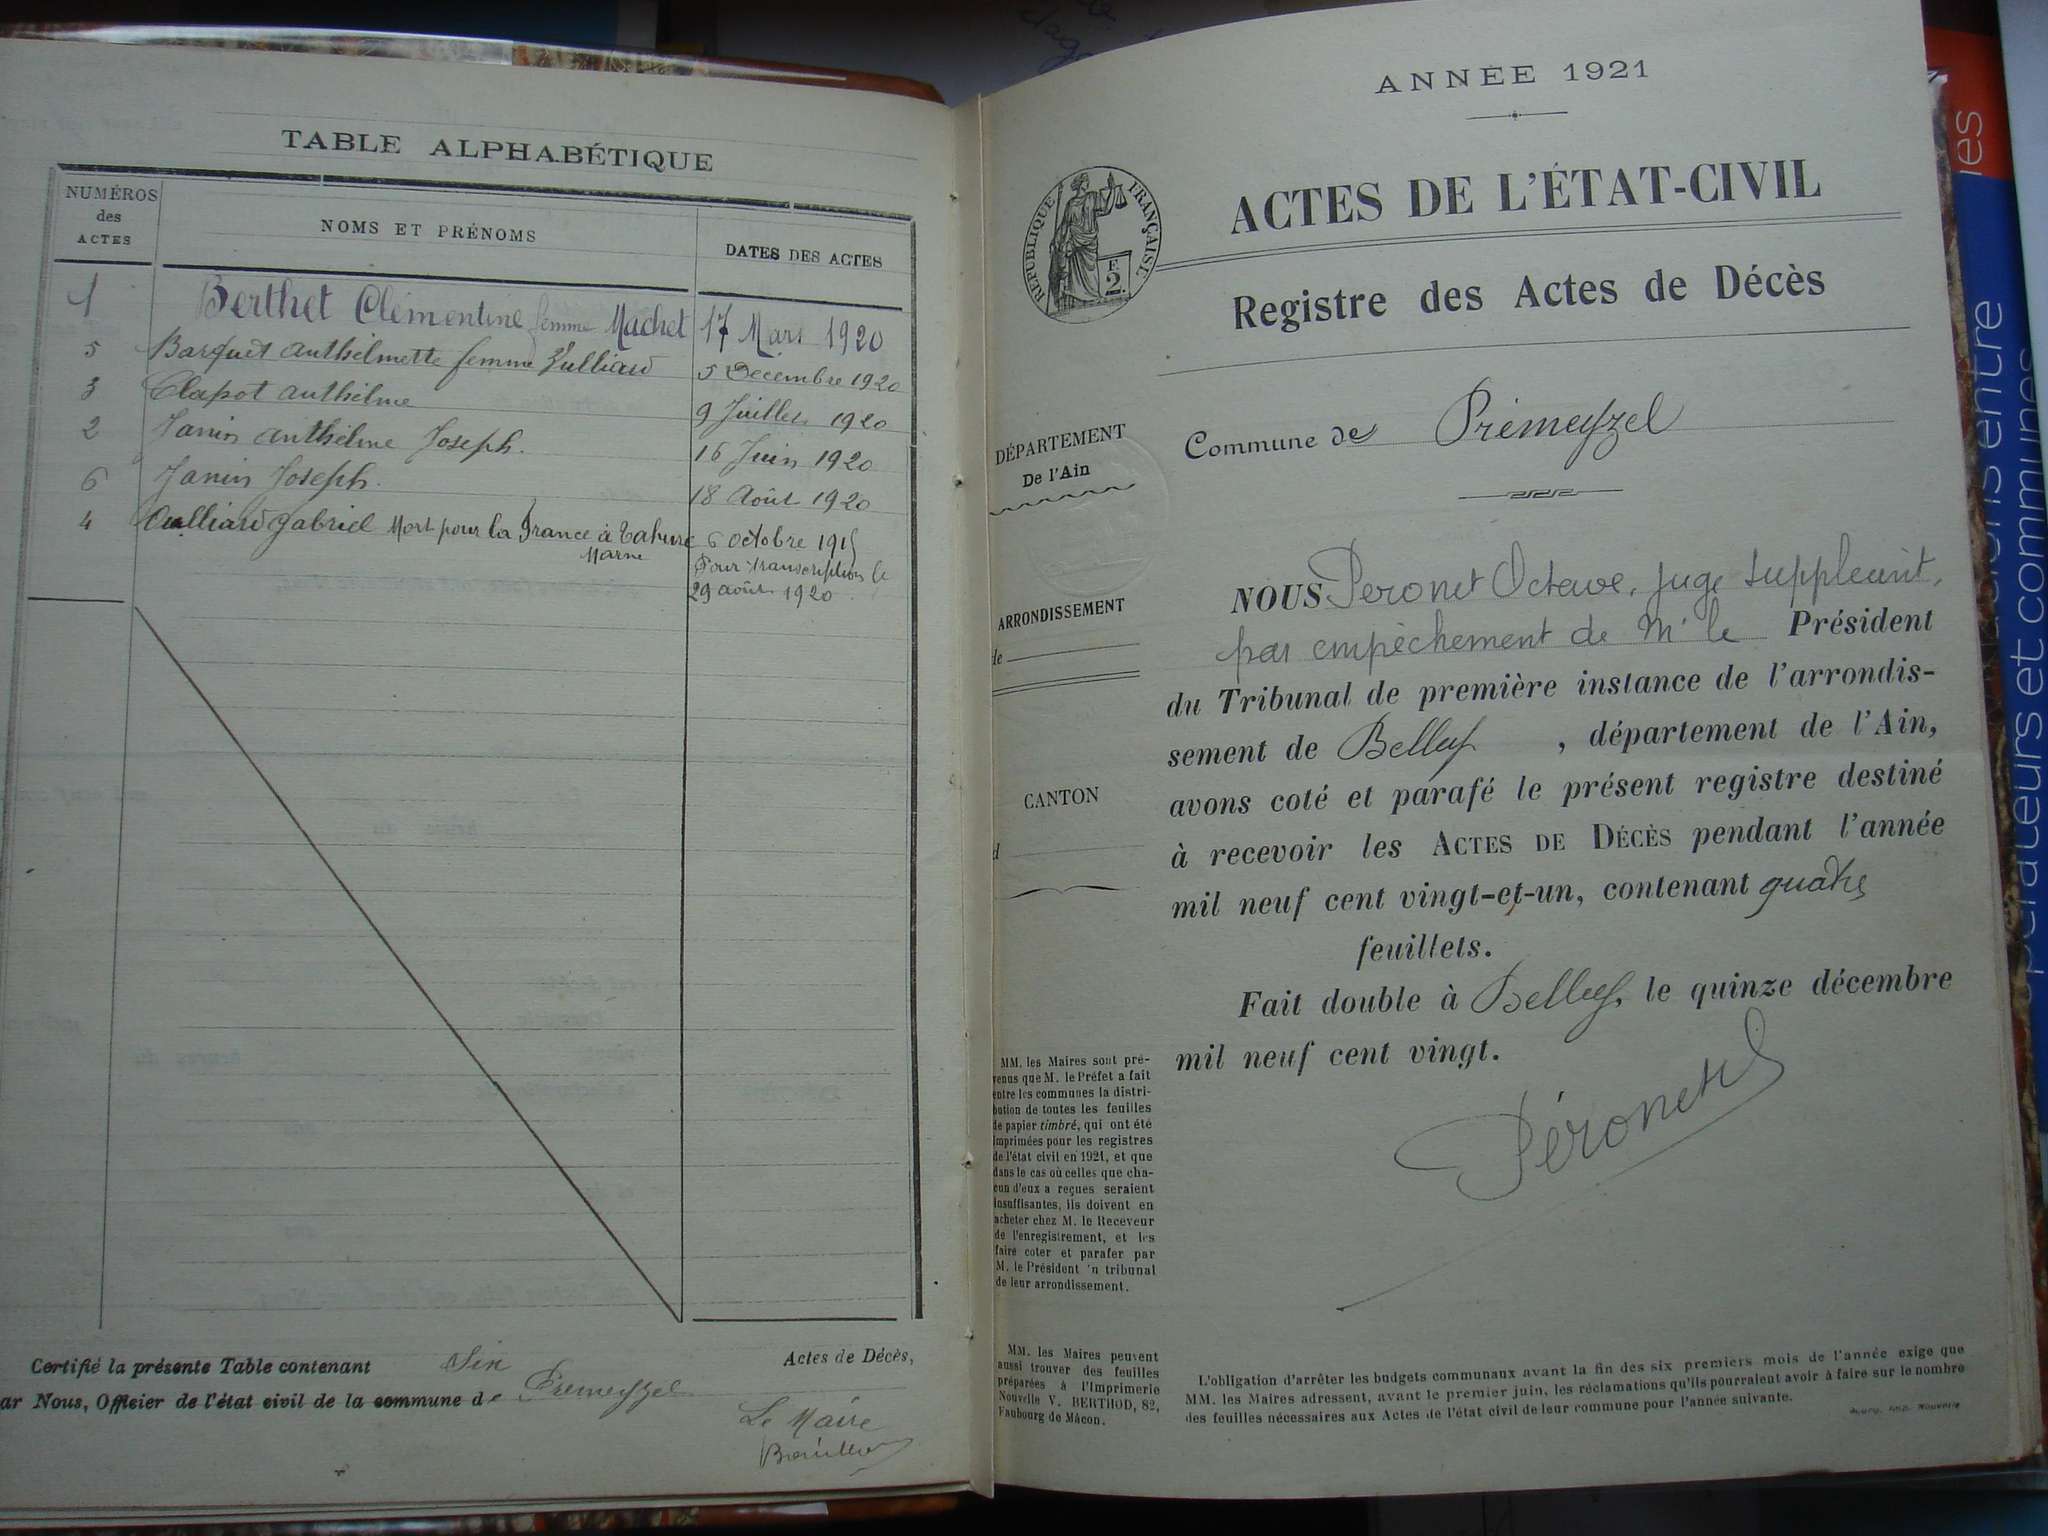 TABLE ALPHABÉTIQUE
NUMÉROS
des
ACTES
NOMS ET PRÉNOMS
DATES DES ACTES
1 Berthet Clémentine femme Machet 17 Mars 1920
5 Barquet Anthelmette femme 5 Décembre 1920
3 Clapot Anthelme 9 Juillet 1920
2 Janin Anthelme Joseph. 16 Juin 1920
6 Janin Joseph. 18 Août 1920
4 Gabriel Mort pour la France à Tahure 6 octobre 1915
Marne
Pour transcription le
29 août 1920
Certifié la présente Table contenant Six Actes de Décès,
ar Nous, Officier de l'état civil de la commune de Prémeyzel
Le Maire
ANNÉE 1921
RÉPUBLIQUE FRANÇAISE
F.
2.
ACTES DE L'ÉTAT-CIVIL
Registre des Actes de Décès
DÉPARTEMENT
De l'Ain
Commune de Prémeyzel
ARRONDISSEMENT
de
CANTON
d
NOUS Peronet Octave, juge suppléant,
par empêchement de Mr le Président
du Tribunal de première instance de l'arrondis-
sement de Belley , département de l'Ain,
avons coté et parafé le présent registre destiné
à recevoir les ACTES DE DÉCÈS pendant l'année
mil neuf cent vingt-et-un, contenant quatre
feuillets.
Fait double à Belley, le quinze décembre
mil neuf cent vingt.
Péronet
MM. les Maires sont pré-
venus que M. le Préfet a fait
entre les communes la distri-
bution de toutes les feuilles
de papier timbré, qui ont été
imprimées pour les registres
de l'état civil en 1921, et que
dans le cas où celles que cha-
cun d'eux a reçues seraient
insuffisantes, ils doivent en
acheter chez M. le Receveur
de l'enregistrement, et les
faire coter et parafer par
M. le Président 'n tribunal
de leur arrondissement.
MM. les Maires peuvent
aussi trouver des feuilles
préparées à l'Imprimerie
Nouvelle V. BERTHOD, 82,
Faubourg de Mâcon.
L'obligation d'arrêter les budgets communaux avant la fin des six premiers mois de l'année exige que
MM. les Maires adressent, avant le premier juin, les réclamations qu'ils pourraient avoir à faire sur le nombre
des feuilles nécessaires aux Actes de l'état civil de leur commune pour l'année suivante.
Bourg, imp. Nouvelle
ies
ions entre
pérateurs et communes